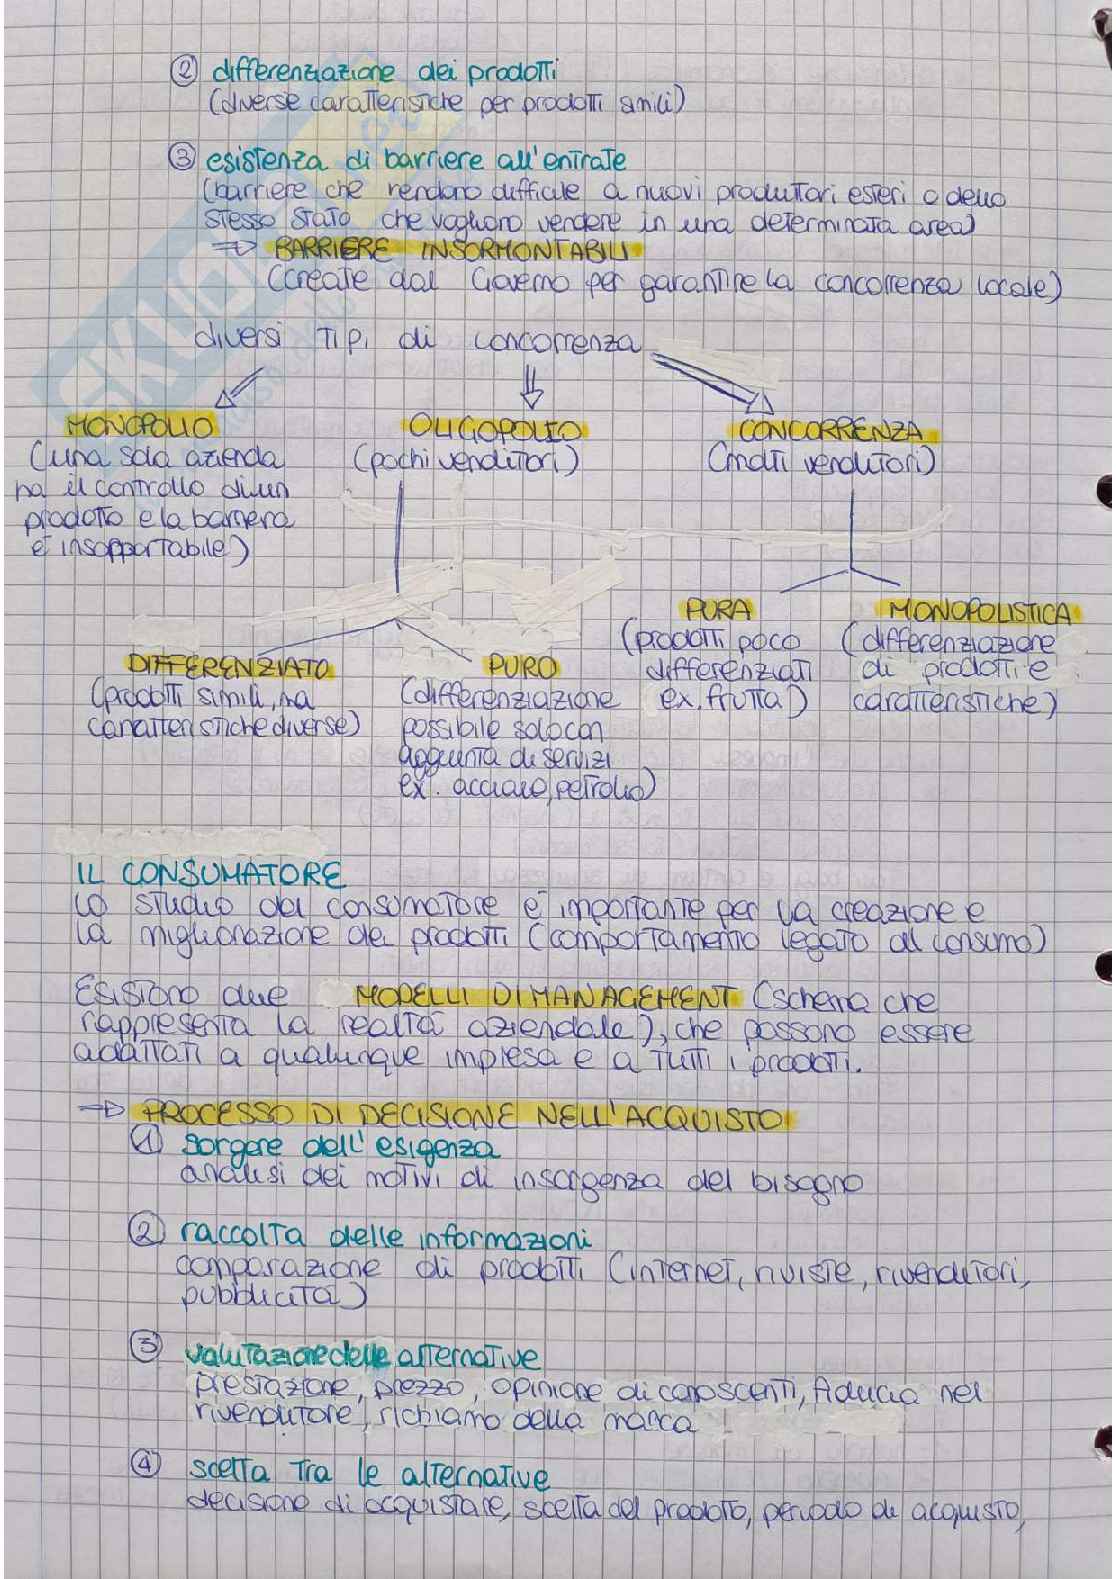 ② differenziazione dei prodotti
(diverse caratteristiche per prodotti simili)
③ esistenza di barriere all'entrate
(barriere che rendono difficile a nuovi produttori esteri o dello
stesso stato che vogliono vendere in una determinata area)
⇒ BARRIERE INSORMONTABILI
(create dal Governo per garantire la concorrenza locale)
diversi tipi di concorrenza
MONOPOLIO
(una sola azienda
ha il controllo di un
prodotto e la barriera
è insopportabile)
OLIGOPOLIO
(pochi venditori)
CONCORRENZA
(molti venditori)
DIFFERENZIATO
(prodotti simili, ma
caratteristiche diverse)
PURO
(differenziazione
possibile solo con
aggiunta di servizi
ex. acciaio, petrolio)
PURA
(prodotti poco
differenziati
ex. frutta)
MONOPOLISTICA
(differenziazione
di prodotti e
caratteristiche)
IL CONSUMATORE
Lo studio del consumatore è importante per la creazione e
la migliorazione dei prodotti (comportamento legato al consumo)
Esistono due MODELLI DI MANAGEMENT (schema che
rappresenta la realtà aziendale), che possono essere
adattati a qualunque impresa e a tutti i prodotti.
⇒ PROCESSO DI DECISIONE NELL'ACQUISTO
① sorgere dell'esigenza
analisi dei motivi di insorgenza del bisogno
② raccolta delle informazioni
comparazione di prodotti (internet, riviste, rivenditori,
pubblicità)
③ valutazione delle alternative
prestazione, prezzo, opinione di conoscenti, fiducia nel
rivenditore, richiamo della marca
④ scelta tra le alternative
decisione di acquistare, scelta del prodotto, periodo di acquisto,